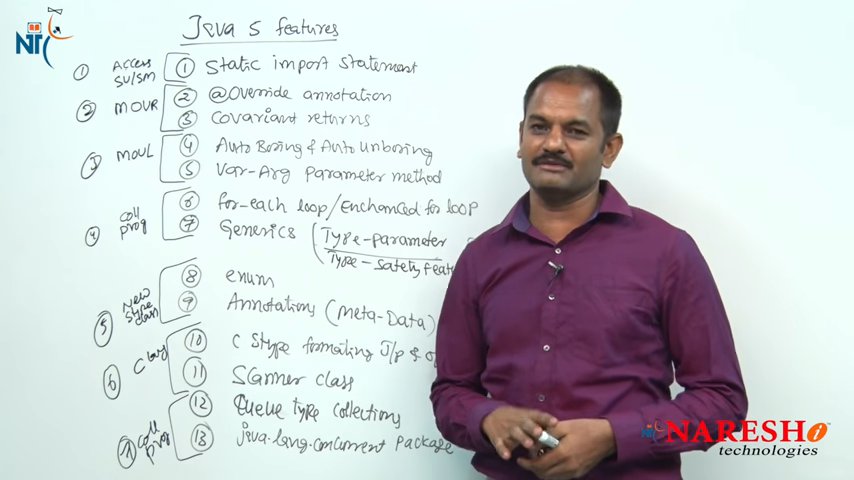 NTC
Java 5 features
① Access SV/SM ① Static import statement
② MOVR ② @Override annotation
③ Covariant returns
③ MOVL ④ Auto Boxing & Auto Unboxing
⑤ Var-Arg parameter method
④ Coll prog ⑥ for-each loop/Enchanced for loop
⑦ Generics (Type-parameter
Type-safety Feat
⑤ New type class ⑧ enum
⑨ Annotations (Meta-Data)
⑥ C lang ⑩ C Stype formating I/p & o
⑪ Scanner class
⑦ Coll prog ⑫ Queue type collections
⑬ java.lang.concurrent package
NARESH i
technologies